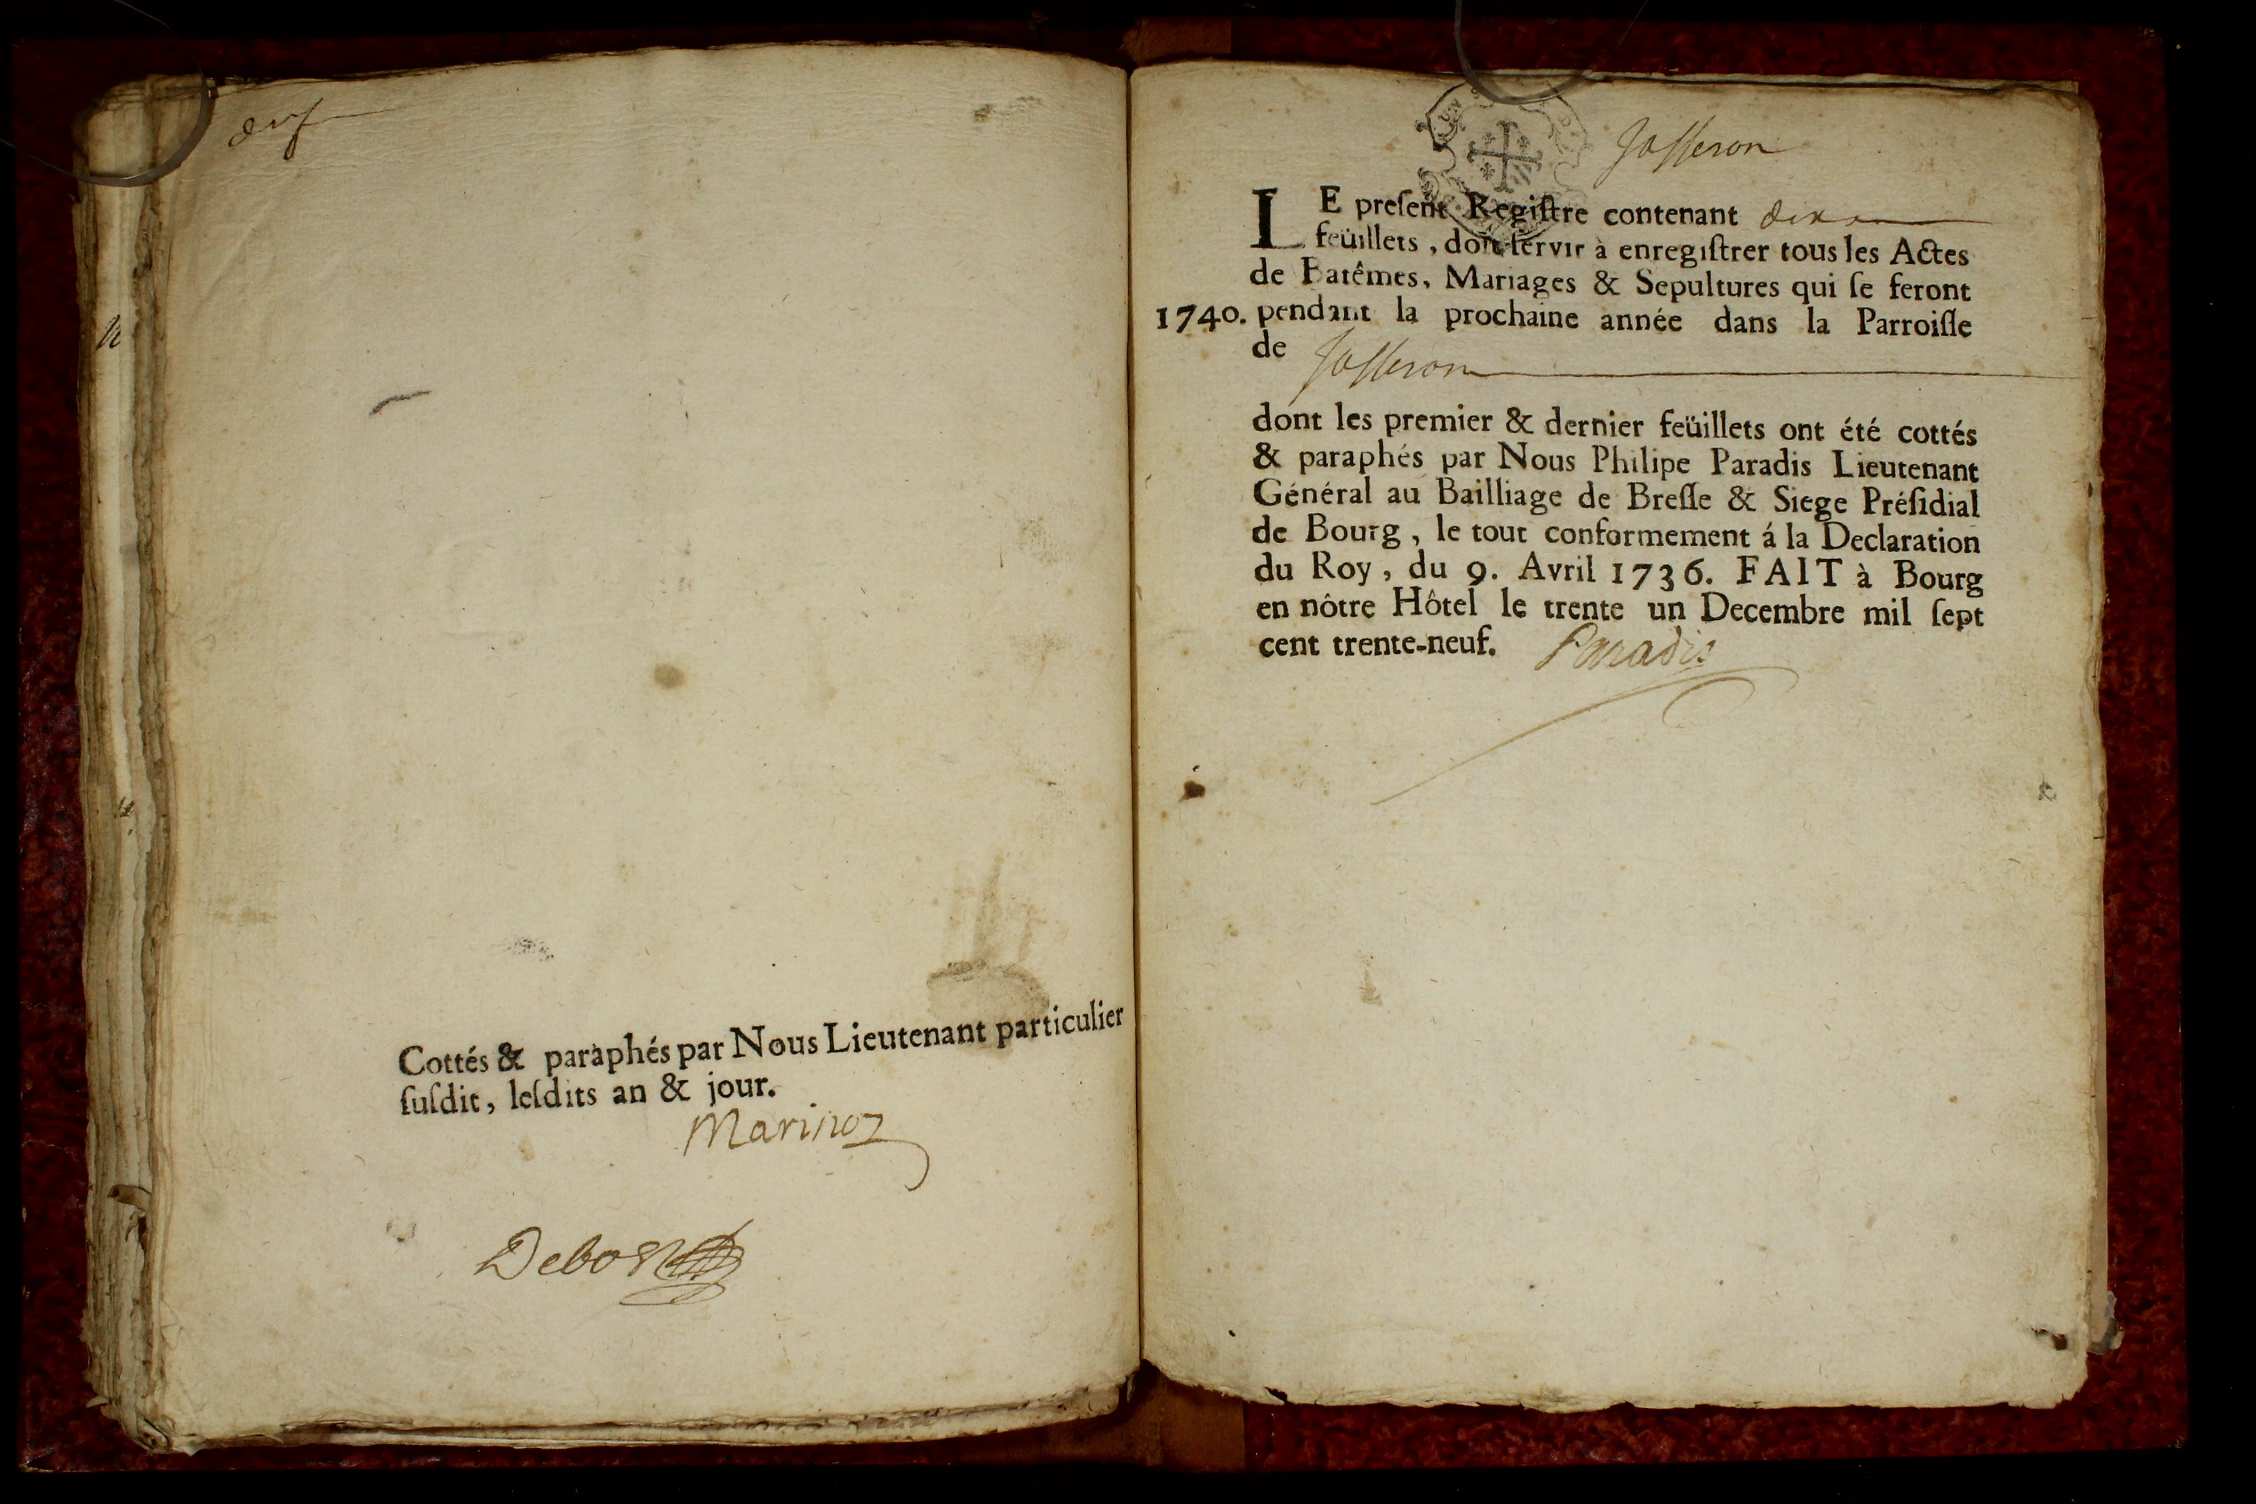 Cottés & paraphés par Nous Lieutenant particulier
ſuſdit, leſdits an & jour.
Marinoz
Debost
Jasseron
LE preſent Regiſtre contenant dix
feüillets, doit ſervir à enregiſtrer tous les Actes
de Batêmes, Mariages & Sepultures qui ſe feront
1740. pendant la prochaine année dans la Parroiſſe
de Jasseron
dont les premier & dernier feüillets ont été cottés
& paraphés par Nous Philipe Paradis Lieutenant
Général au Bailliage de Breſſe & Siege Préſidial
de Bourg, le tout conformement á la Declaration
du Roy, du 9. Avril 1736. FAIT à Bourg
en nôtre Hôtel le trente un Decembre mil ſept
cent trente-neuf. Paradis